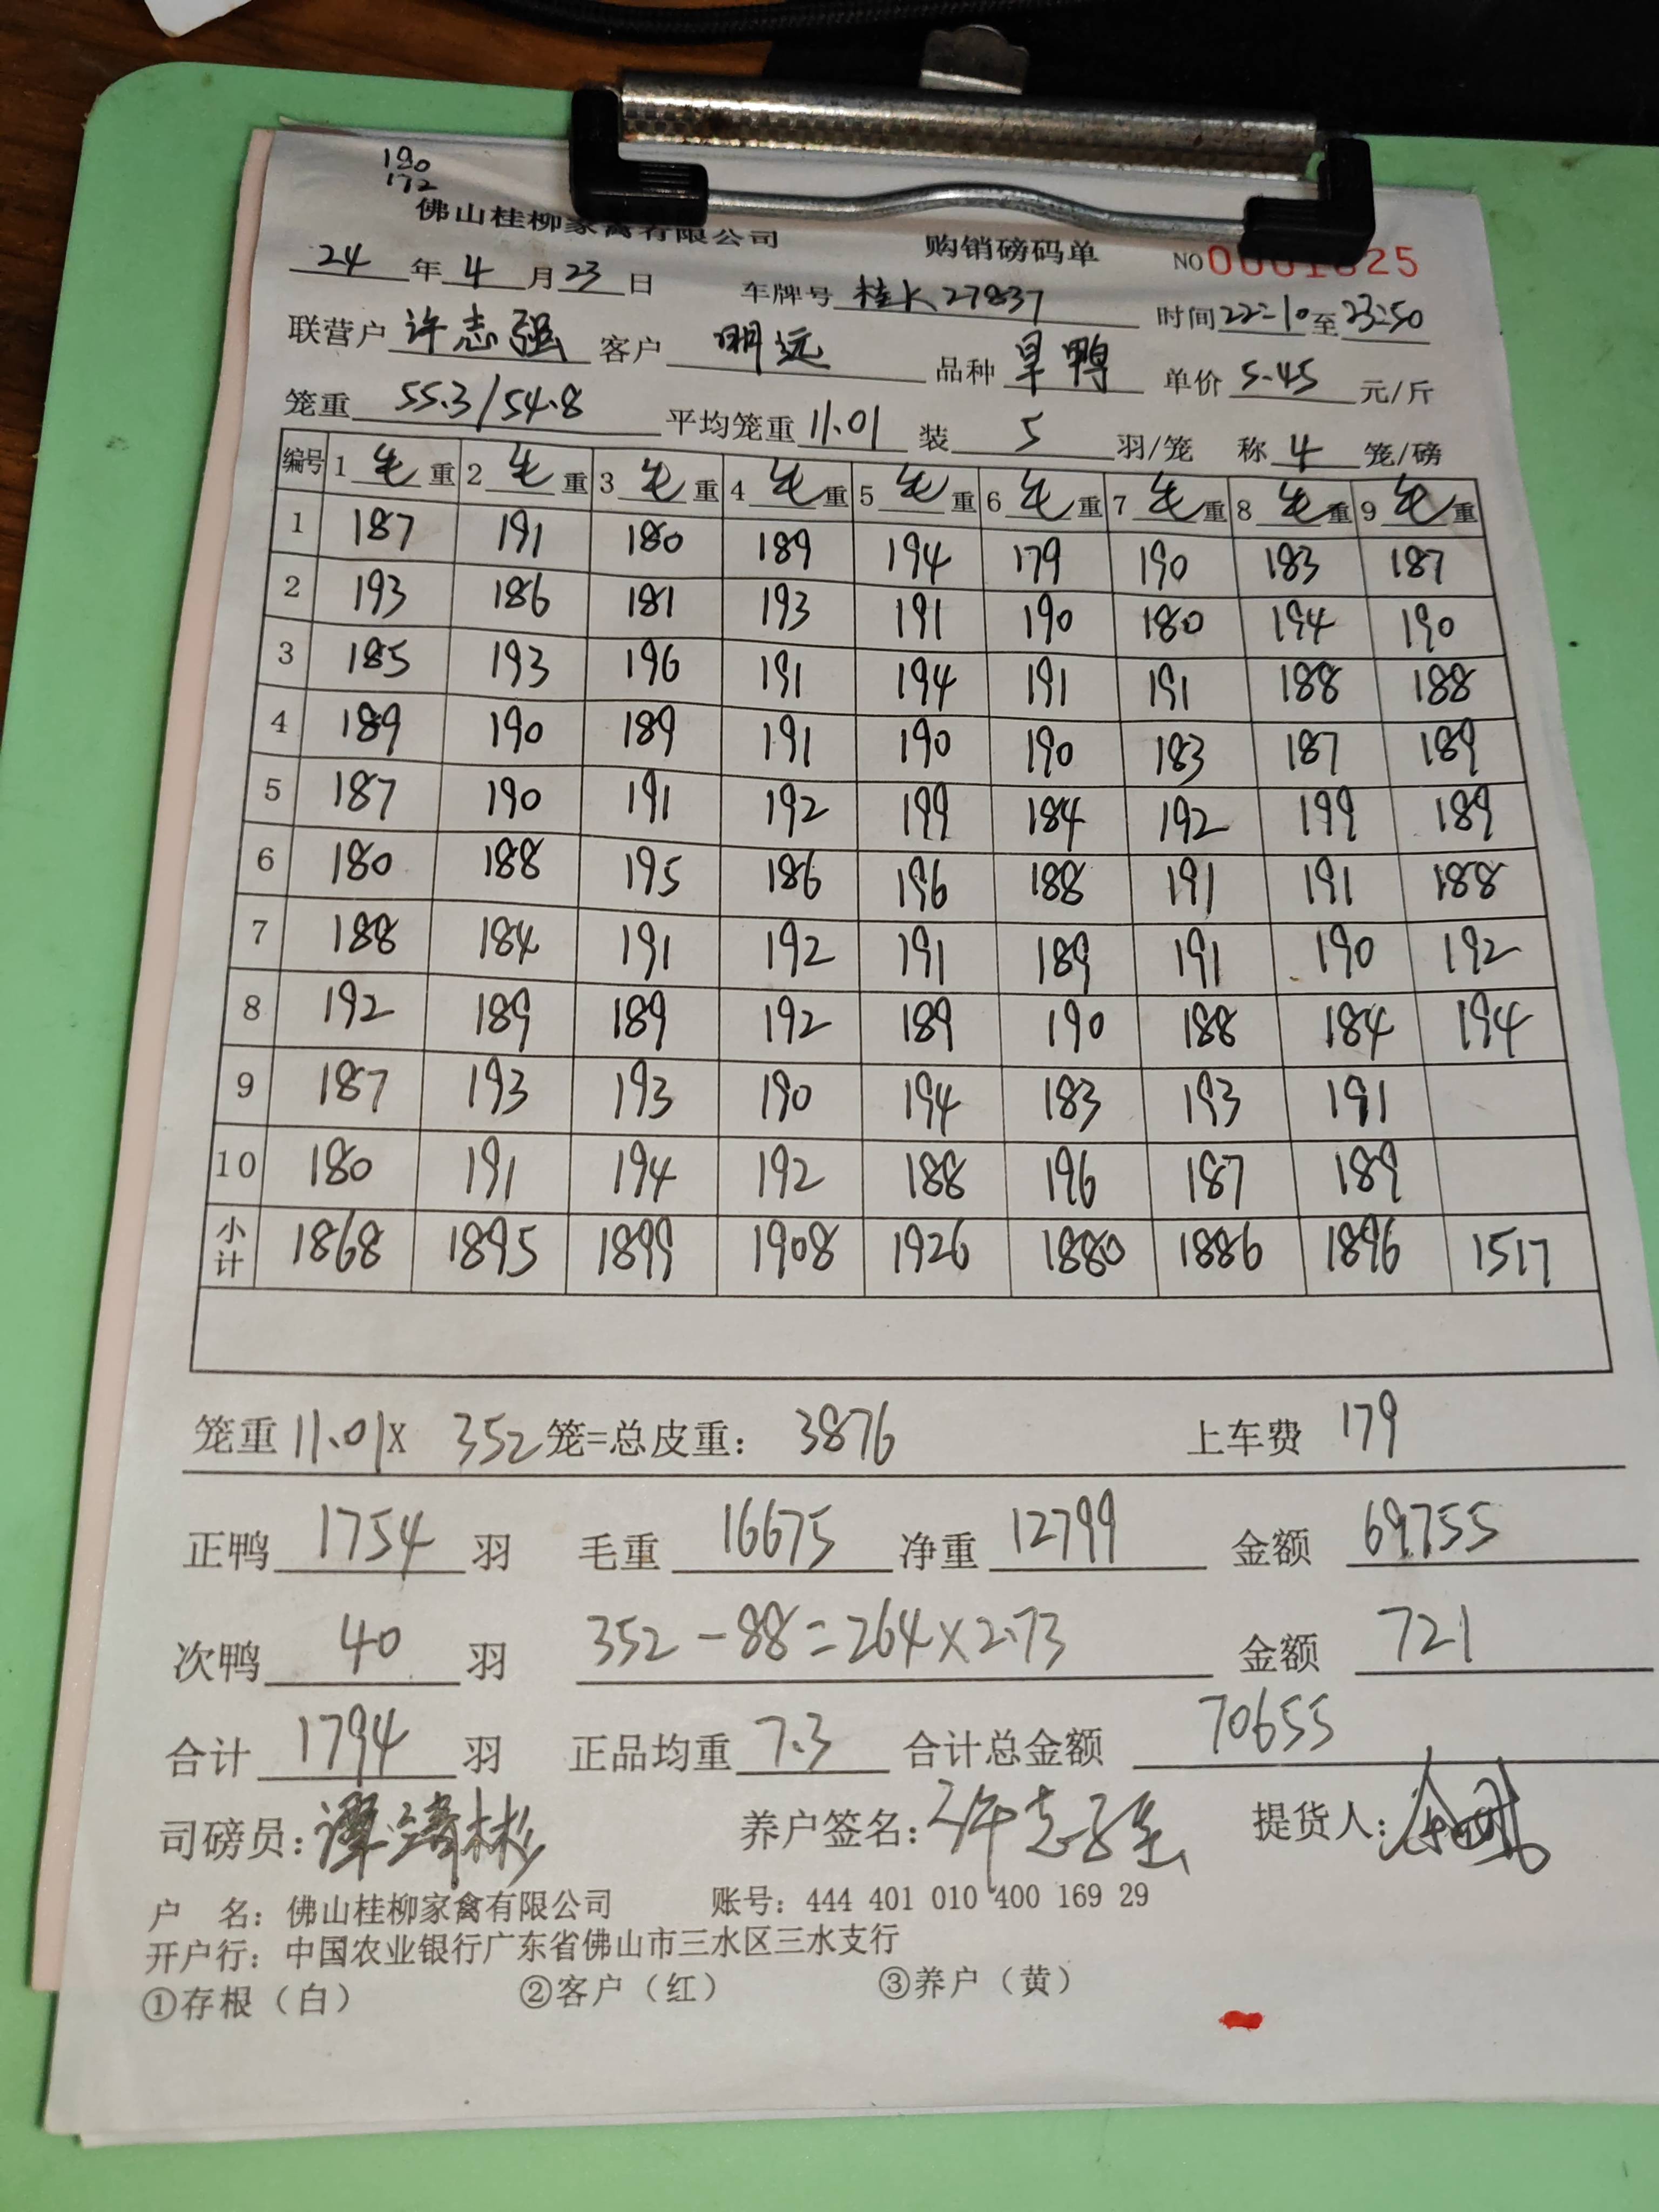 190
172
佛山桂柳家禽有限公司 购销磅码单 NO
24 年 4 月 23 日 车牌号 桂K27837 时间 22=10 至 23=50
联营户 许志强 客户 明远 品种 旱鸭 单价 5.45 元/斤
笼重 55.3/54.8 平均笼重 11.01 装 5 羽/笼 称 4 笼/磅
编号 1 毛 重 2 毛 重 3 毛 重 4 毛 重 5 毛 重 6 毛 重 7 毛 重 8 毛 重 9 毛 重
1 187 191 180 189 194 179 190 183 187
2 193 186 181 193 191 190 180 194 190
3 185 193 196 191 194 191 191 188 188
4 189 190 189 191 190 190 183 187 189
5 187 190 191 192 199 184 192 199 189
6 180 188 195 186 196 188 191 191 188
7 188 184 191 192 191 189 191 190 192
8 192 189 189 192 189 190 188 184 194
9 187 193 193 190 194 183 193 191
10 180 191 194 192 188 196 187 189
小计 1868 1895 1899 1908 1926 1880 1886 1896 1517
笼重 11.01X 352 笼=总皮重: 3876 上车费 179
正鸭 1754 羽 毛重 16675 净重 12799 金额 69755
次鸭 40 羽 352-88=264×2.73 金额 721
合计 1794 羽 正品均重 7.3 合计总金额 70655
司磅员: 养户签名: 许志强 提货人:
户 名: 佛山桂柳家禽有限公司 账号: 444 401 010 400 169 29
开户行: 中国农业银行广东省佛山市三水区三水支行
①存根(白) ②客户(红) ③养户(黄)